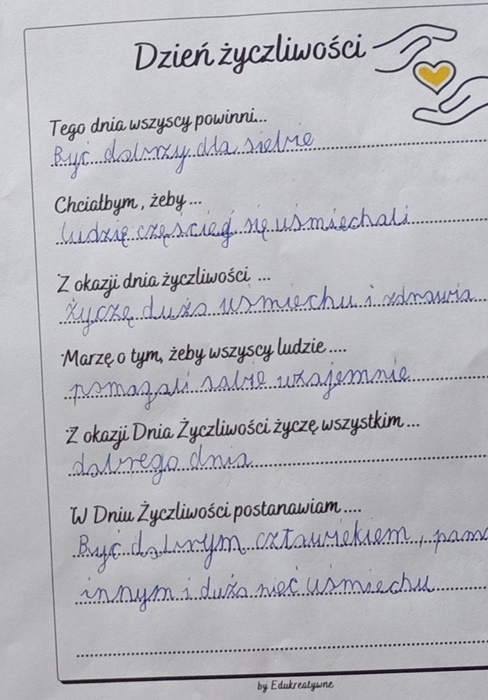 Dzień życzliwości
Tego dnia wszyscy powinni...
Być dobrzy dla siebie
Chciałbym, żeby ...
ludzie częściej się uśmiechali
Z okazji dnia życzliwości ...
życzę dużo uśmiechu i zdrowia
Marzę o tym, żeby wszyscy ludzie ....
pomagali sobie wzajemnie
Z okazji Dnia Życzliwości życzę wszystkim...
dobrego dnia
W Dniu Życzliwości postanawiam ....
Być dobrym człowiekiem,
innym i dużo mieć uśmiechu
by Edukreatywne